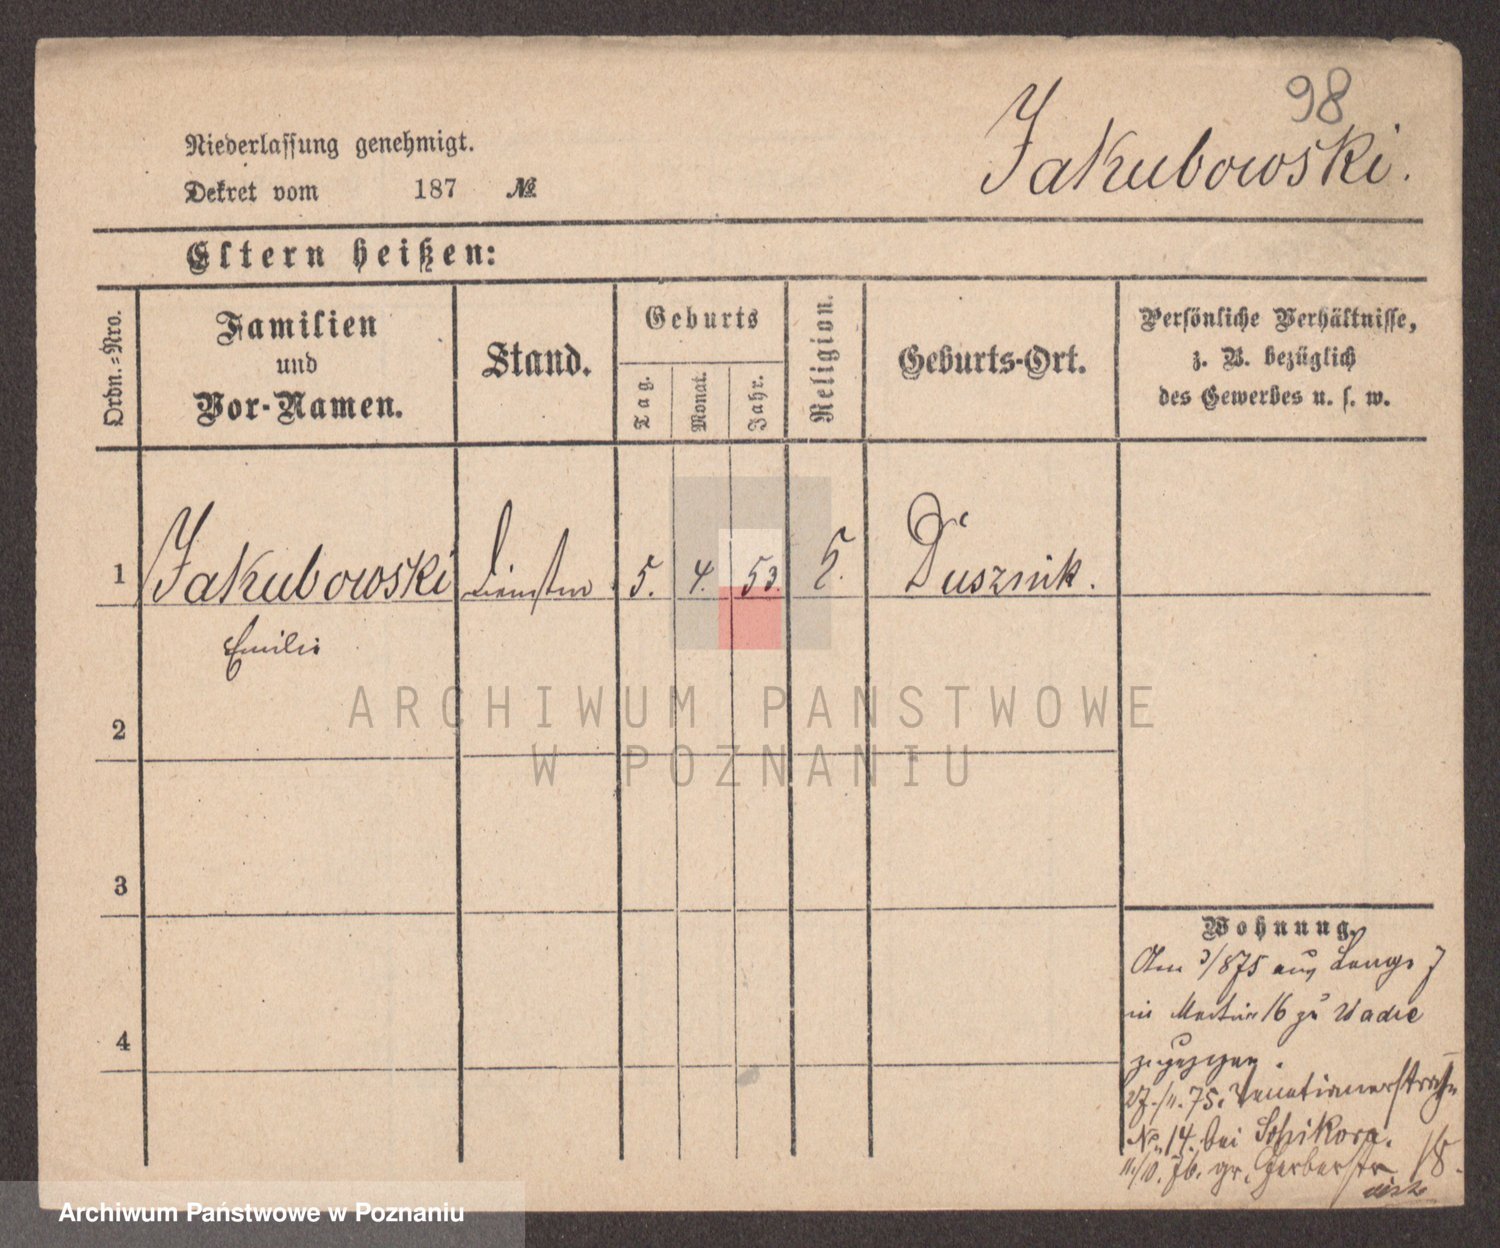 98
Jakubowski.
Niederlassung genehmigt.
Dekret vom 187 №
Eltern heißen:
Ordn.-Nro.
Familien
und
Vor-Namen.
Stand.
Geburts
Tag.
Monat.
Jahr.
Religion.
Geburts-Ort.
Persönliche Verhältnisse,
z. B. bezüglich
des Gewerbes u. s. w.
1 Jakubowski 5. 4. 53. Dusznik.
Emilie
2
3
4
Wohnung.
Am 3/875 aus Lange 7
in Martin 16 zu
zugezogen.
27./11. 75. Venetianerstraße
No. 14. bei
11./10. 76. gr. Gerberstr 18.
ARCHIWUM PAŃSTWOWE
W POZNANIU
Archiwum Państwowe w Poznaniu